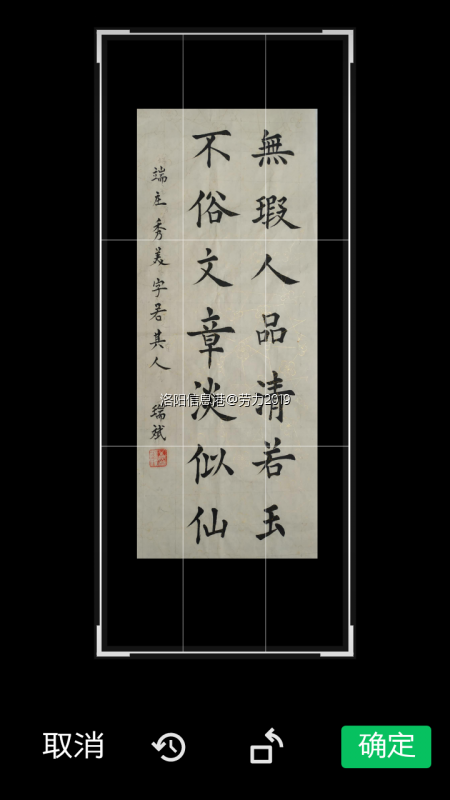 無瑕人品清若玉
不俗文章淡似仙
端庄秀美字若其人
瑞斌
洛阳信息港@劳力2919
取消
确定